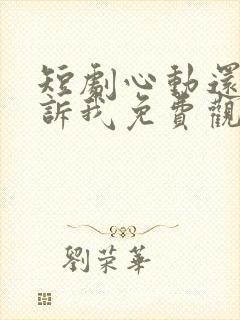 短劇心動還
訴我免費觀
劉榮華